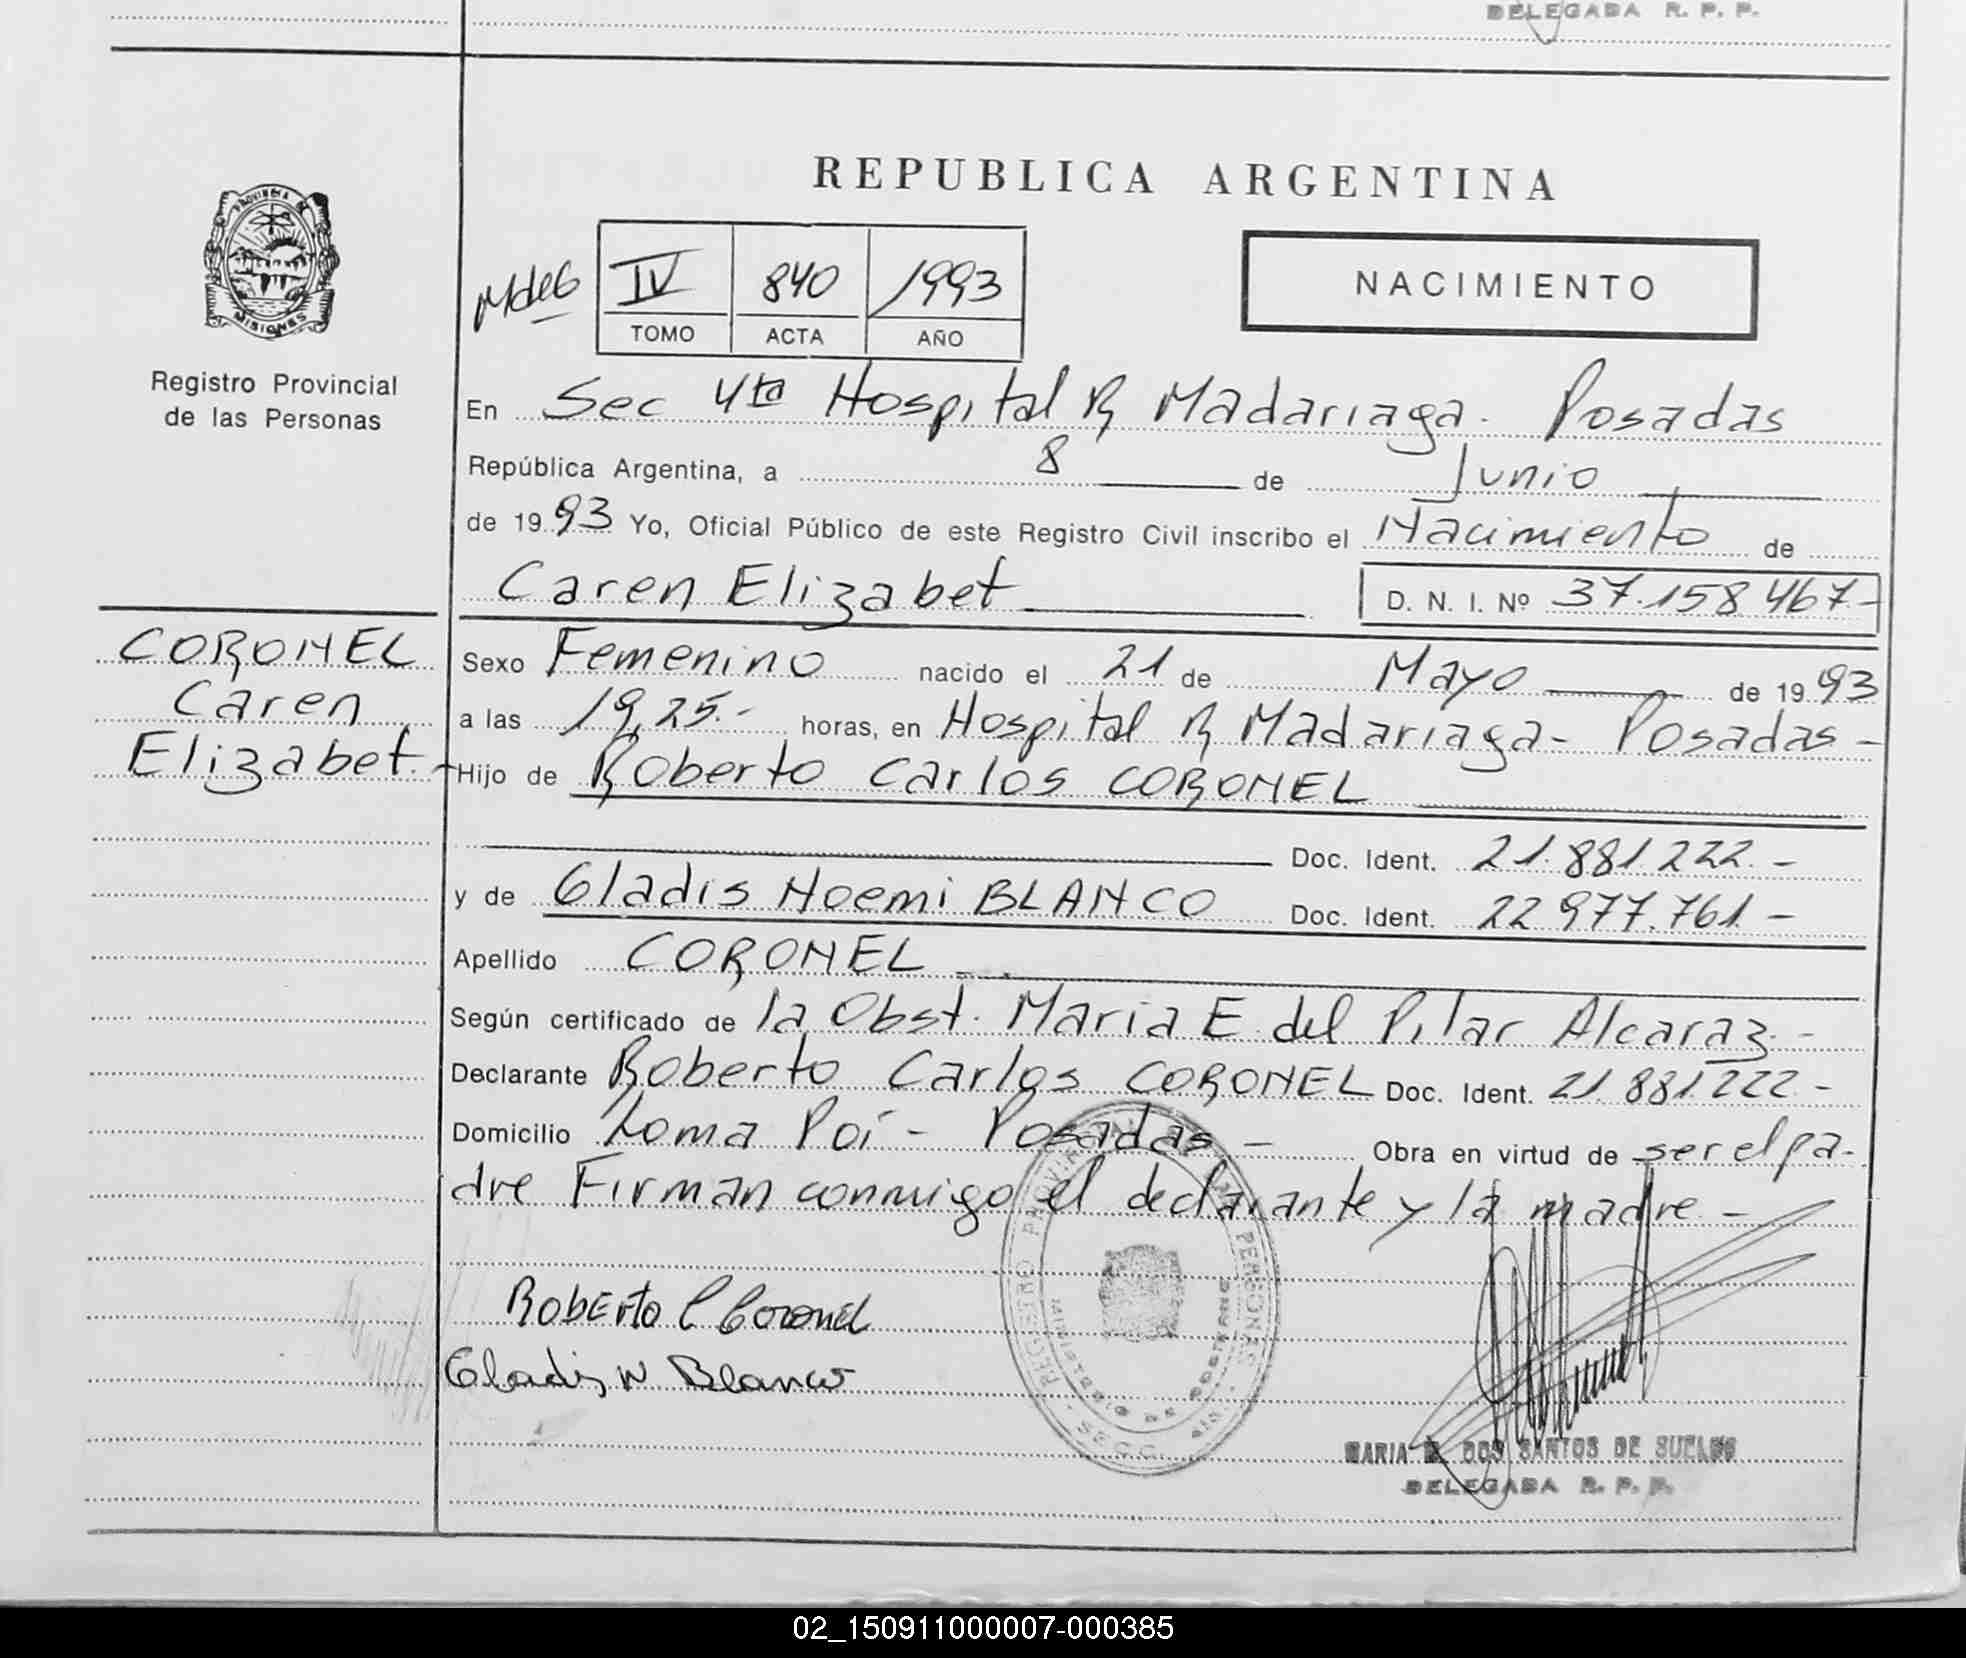 DELEGADA R. P. P.
REPUBLICA ARGENTINA
PROVINCIA DE
MISIONES
Registro Provincial
de las Personas
IV 840 1993
TOMO ACTA AÑO
NACIMIENTO
En Sec 4ta Hospital R Madariaga. Posadas
República Argentina, a 8 de Junio
de 1993 Yo, Oficial Público de este Registro Civil inscribo el Nacimiento de
Caren Elizabet D. N. I. Nº 37.158.467-
CORONEL
Caren
Elizabet.-
Sexo Femenino nacido el 21 de Mayo de 1993
a las 19,25.- horas, en Hospital R Madariaga- Posadas-
Hijo de Roberto Carlos CORONEL
Doc. Ident. 21.881.222.-
y de Gladis Noemi BLANCO Doc. Ident. 22.977.761.-
Apellido CORONEL
Según certificado de la Obst. Maria E del Pilar Alcaraz.-
Declarante Roberto Carlos CORONEL Doc. Ident. 21.881.222-
Domicilio Loma Poi- Posadas- Obra en virtud de ser el pa-
dre Firman conmigo el declarante y la madre-
Roberto C Coronel
Gladis N Blanco
REGISTRO PROVINCIAL DE LAS PERSONAS
MARIA DOS SANTOS DE SUELDO
DELEGADA R. P. P.
02_150911000007-000385